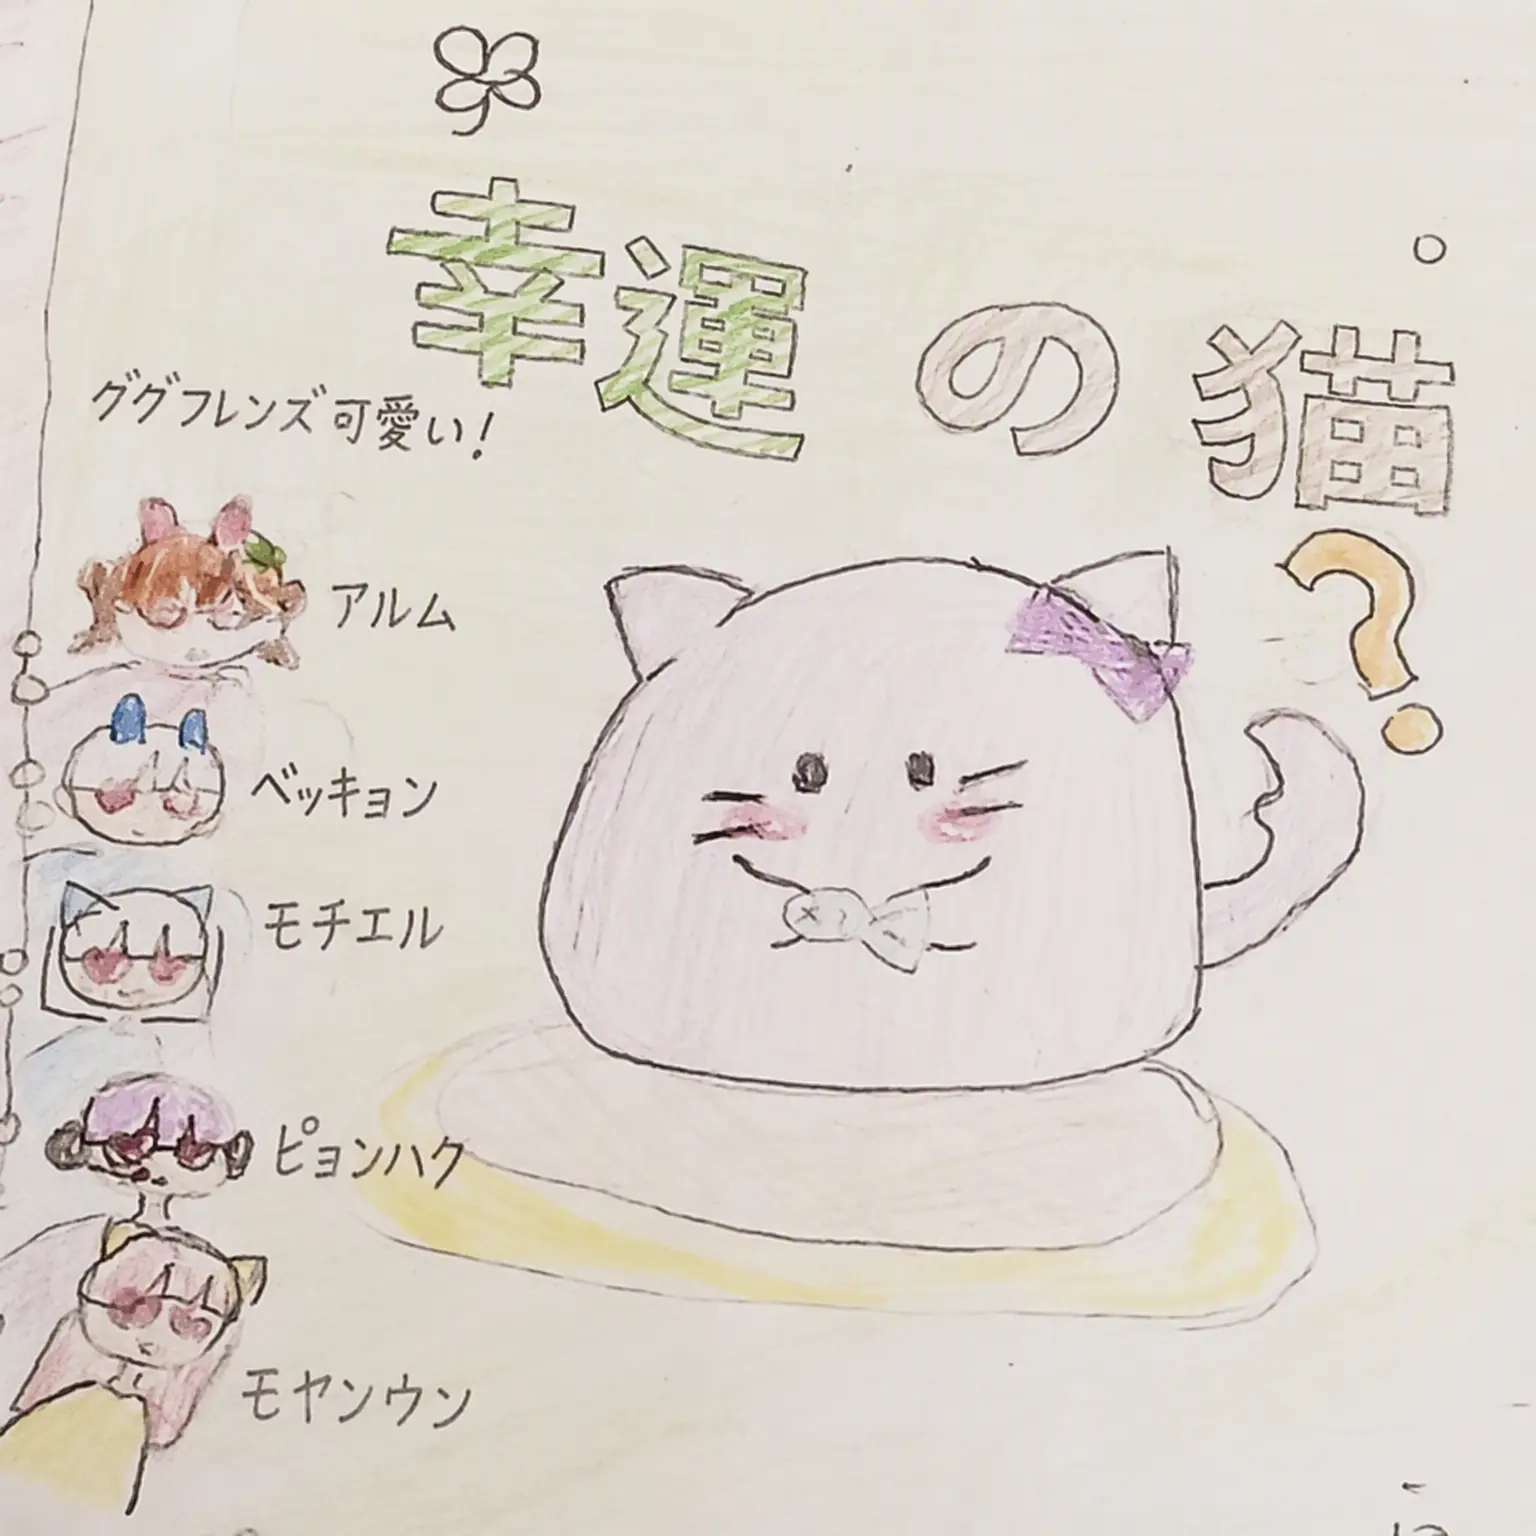 幸運の猫?
ググフレンズ可愛い!
アルム
ベッキョン
モチエル
ピョンハク
モヤンウン